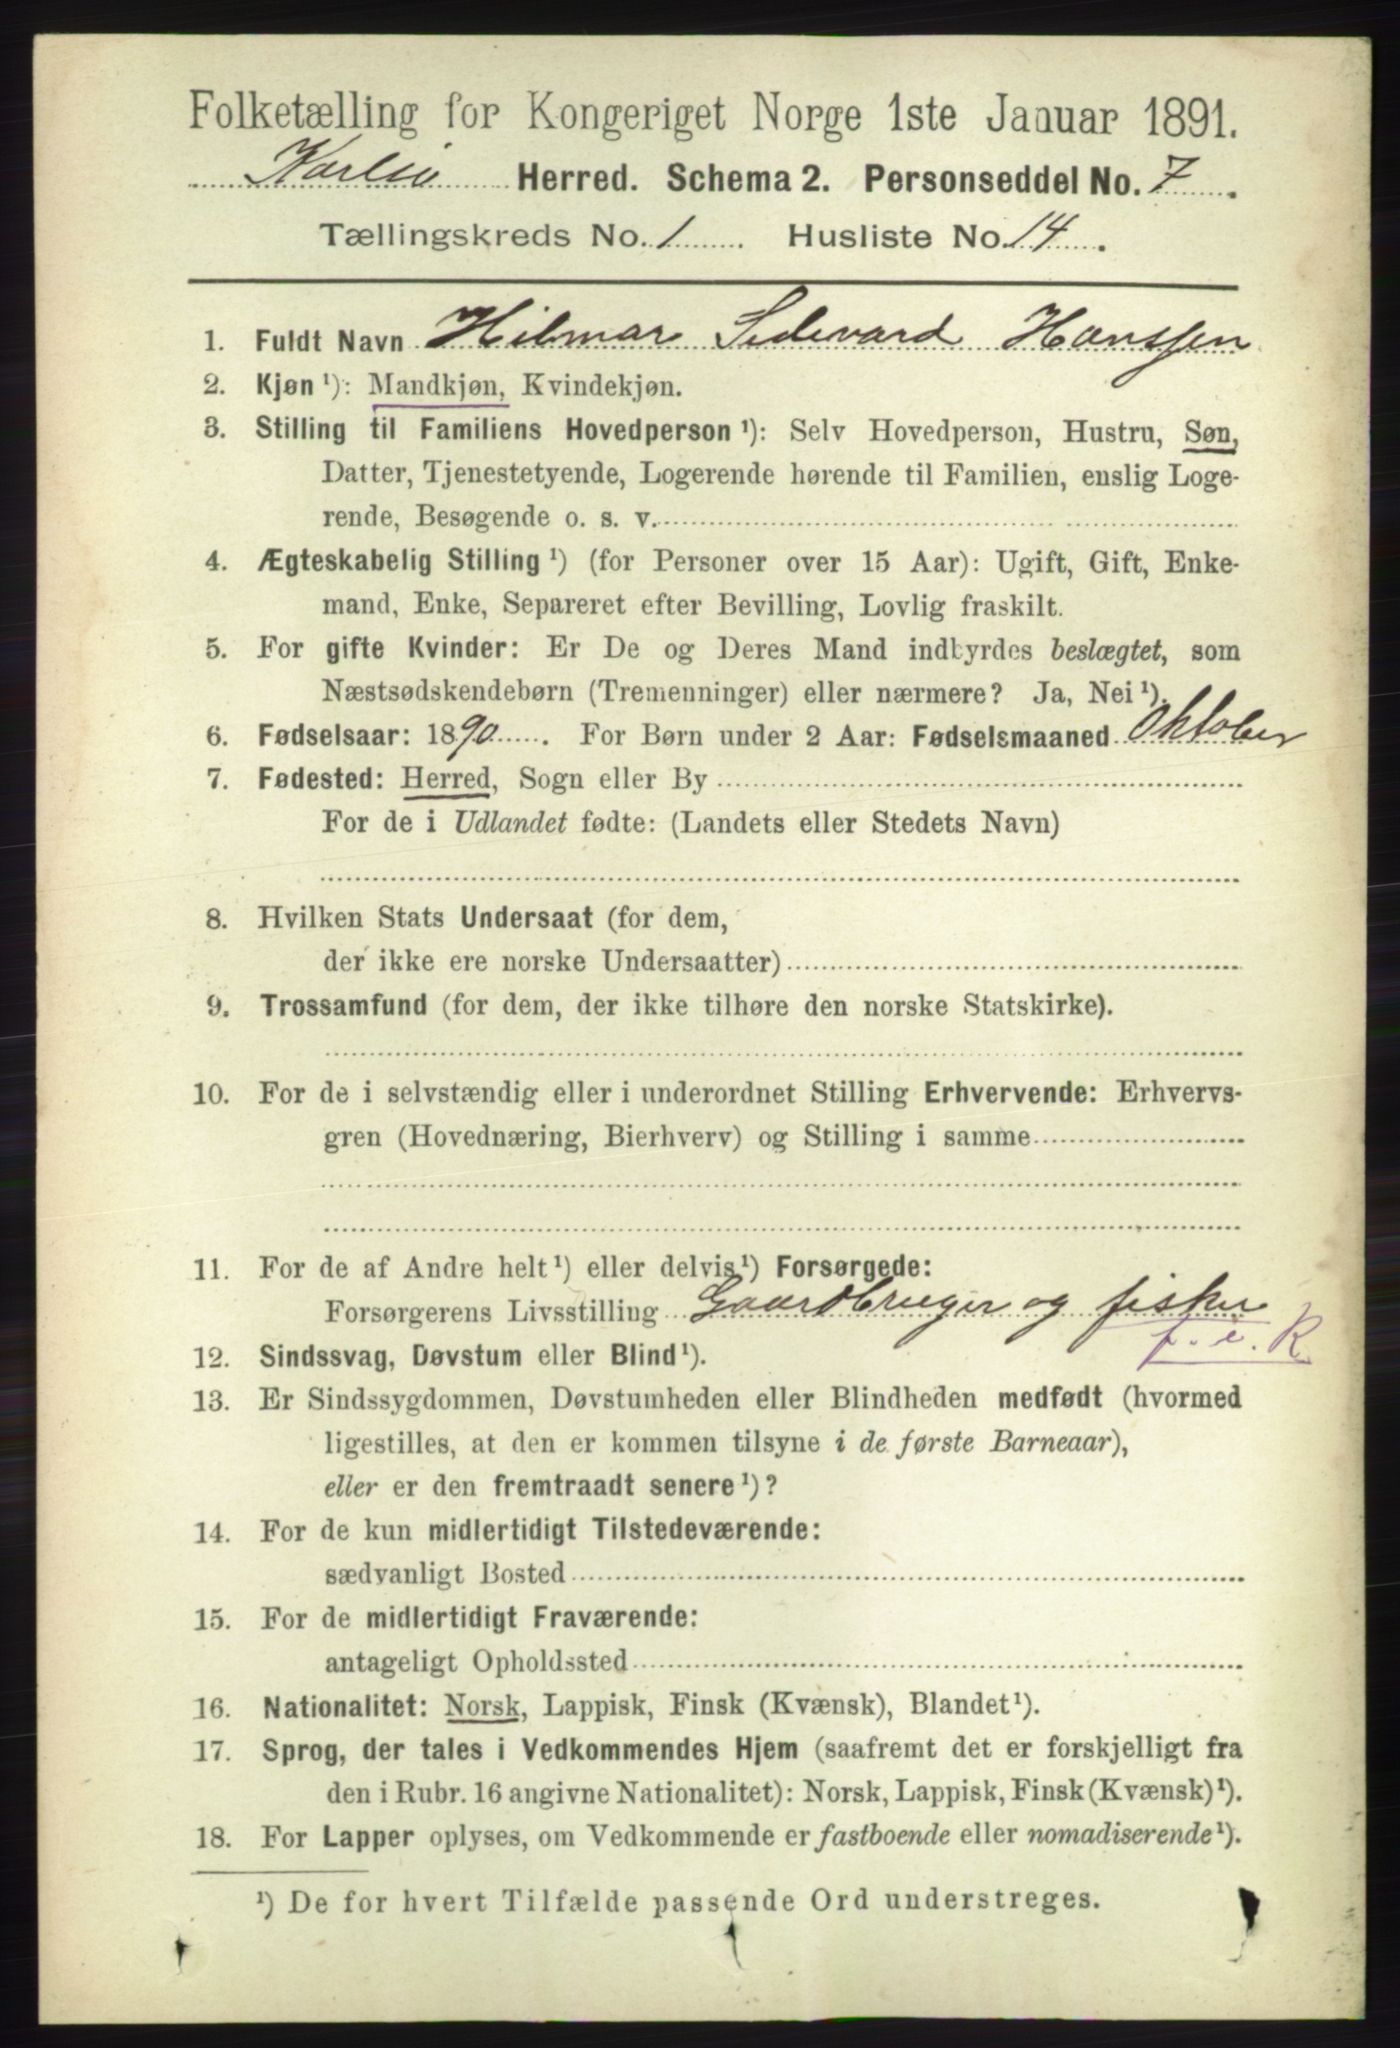 Folketælling for Kongeriget Norge 1ste Januar 1891.
Karlsø Herred. Schema 2. Personseddel No. 7.
Tællingskreds No. 1. Husliste No. 14.
1. Fuldt Navn Hilmar Sedevard Hanssen
2. Kjøn ¹): Mandkjøn, Kvindekjøn.
3. Stilling til Familiens Hovedperson ¹): Selv Hovedperson, Hustru, Søn,
Datter, Tjenestetyende, Logerende hørende til Familien, enslig Loge-
rende, Besøgende o. s. v.
4. Ægteskabelig Stilling ¹) (for Personer over 15 Aar): Ugift, Gift, Enke-
mand, Enke, Separeret efter Bevilling, Lovlig fraskilt.
5. For gifte Kvinder: Er De og Deres Mand indbyrdes beslægtet, som
Næstsødskendebørn (Tremenninger) eller nærmere? Ja, Nei ¹).
6. Fødselsaar: 1890. For Børn under 2 Aar: Fødselsmaaned Oktober
7. Fødested: Herred, Sogn eller By
For de i Udlandet fødte: (Landets eller Stedets Navn)
8. Hvilken Stats Undersaat (for dem,
der ikke ere norske Undersaatter)
9. Trossamfund (for dem, der ikke tilhøre den norske Statskirke).
10. For de i selvstændig eller i underordnet Stilling Erhvervende: Erhvervs-
gren (Hovednæring, Bierhverv) og Stilling i samme
11. For de af Andre helt ¹) eller delvis ¹) Forsørgede:
Forsørgerens Livsstilling Gaardbruger og fisker
f. e. R
12. Sindssvag, Døvstum eller Blind ¹).
13. Er Sindssygdommen, Døvstumheden eller Blindheden medfødt (hvormed
ligestilles, at den er kommen tilsyne i de første Barneaar),
eller er den fremtraadt senere ¹)?
14. For de kun midlertidigt Tilstedeværende:
sædvanligt Bosted
15. For de midlertidigt Fraværende:
antageligt Opholdssted
16. Nationalitet: Norsk, Lappisk, Finsk (Kvænsk), Blandet ¹).
17. Sprog, der tales i Vedkommendes Hjem (saafremt det er forskjelligt fra
den i Rubr. 16 angivne Nationalitet): Norsk, Lappisk, Finsk (Kvænsk) ¹).
18. For Lapper oplyses, om Vedkommende er fastboende eller nomadiserende ¹).
¹) De for hvert Tilfælde passende Ord understreges.